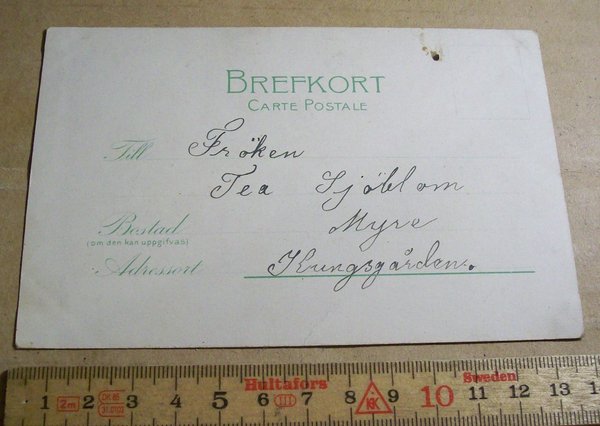 BREFKORT
CARTE POSTALE
Till Fröken
Tea Sjöblom
Bostad Myre
(om den kan uppgifvas)
Adressort Kungsgården.
Hultafors Sweden
1 2m 2 3 4 5 6 III 7 8 9 10 11 12 13